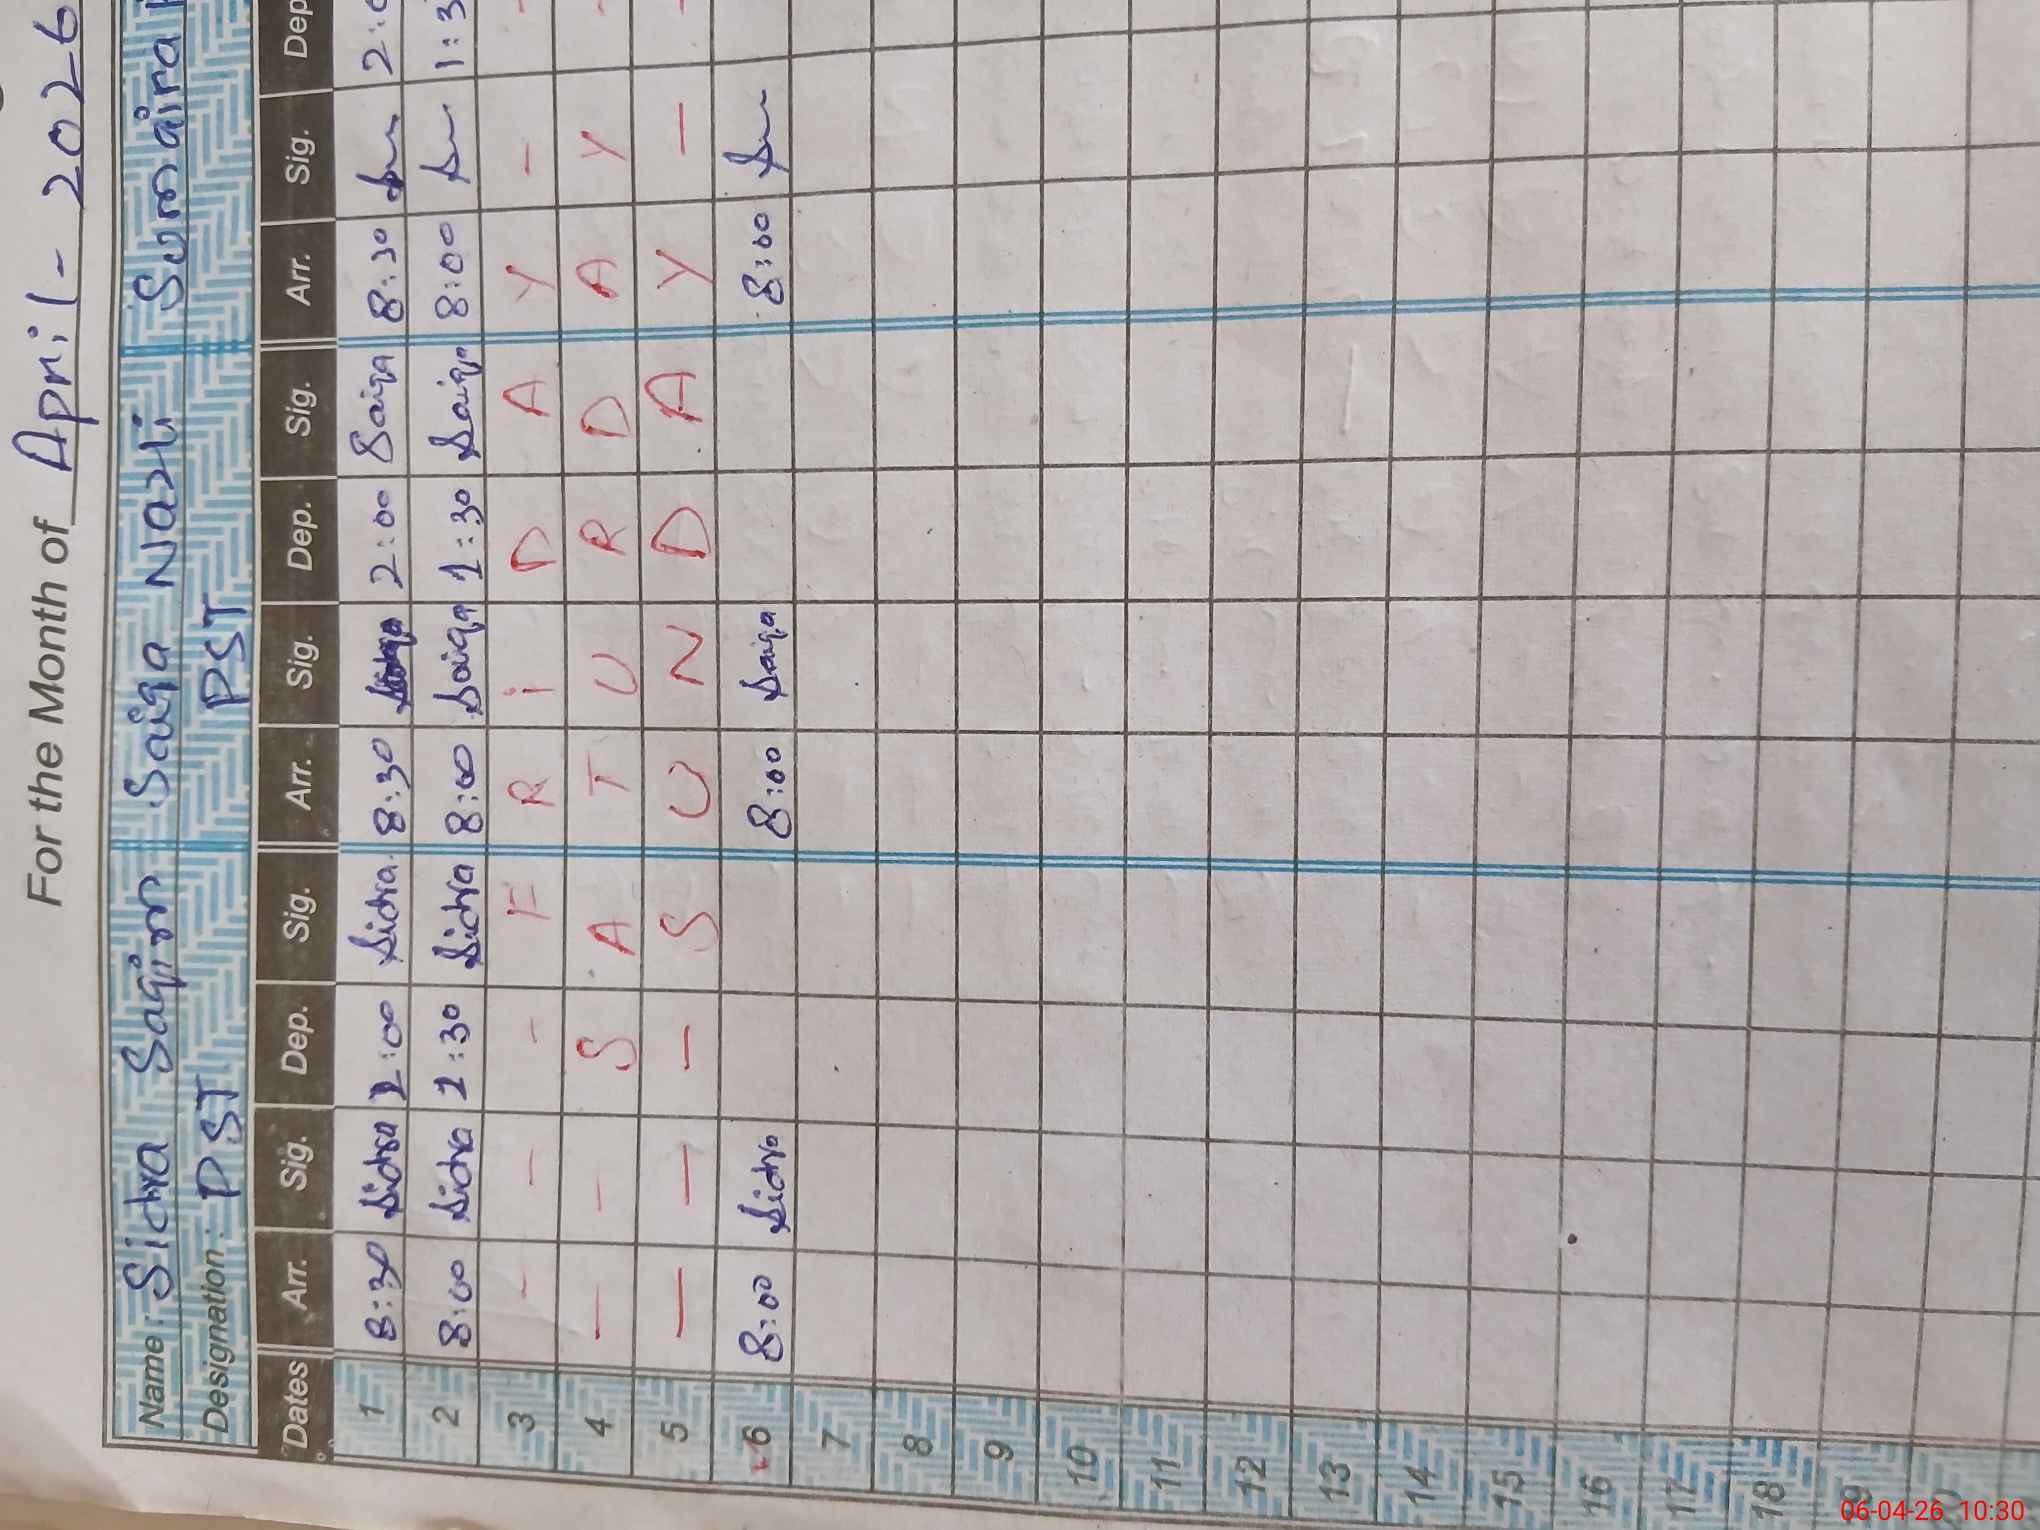 For the Month of April - 2026
Name: Sidra Sagir Saiqa Nazli Sumaira
Designation: PST PST
Dates Arr. Sig. Dep. Sig. Arr. Sig. Dep. Sig. Arr. Sig. Dep
1 8:30 Sidra 2:00 Sidra 8:30 Saiqa 2:00 Saiqa 8:30
2 8:00 Sidra 1:30 Sidra 8:00 Saiqa 1:30 Saiqa 8:00
3 - - - F R i D A Y - -
4 - - S A T U R D A Y -
5 - - - S U N D A Y - -
6 8:00 Sidra 8:00 Saiqa 8:00
7
8
9
10
11
12
13
14
15
16
17
18
19
06-04-26 10:30